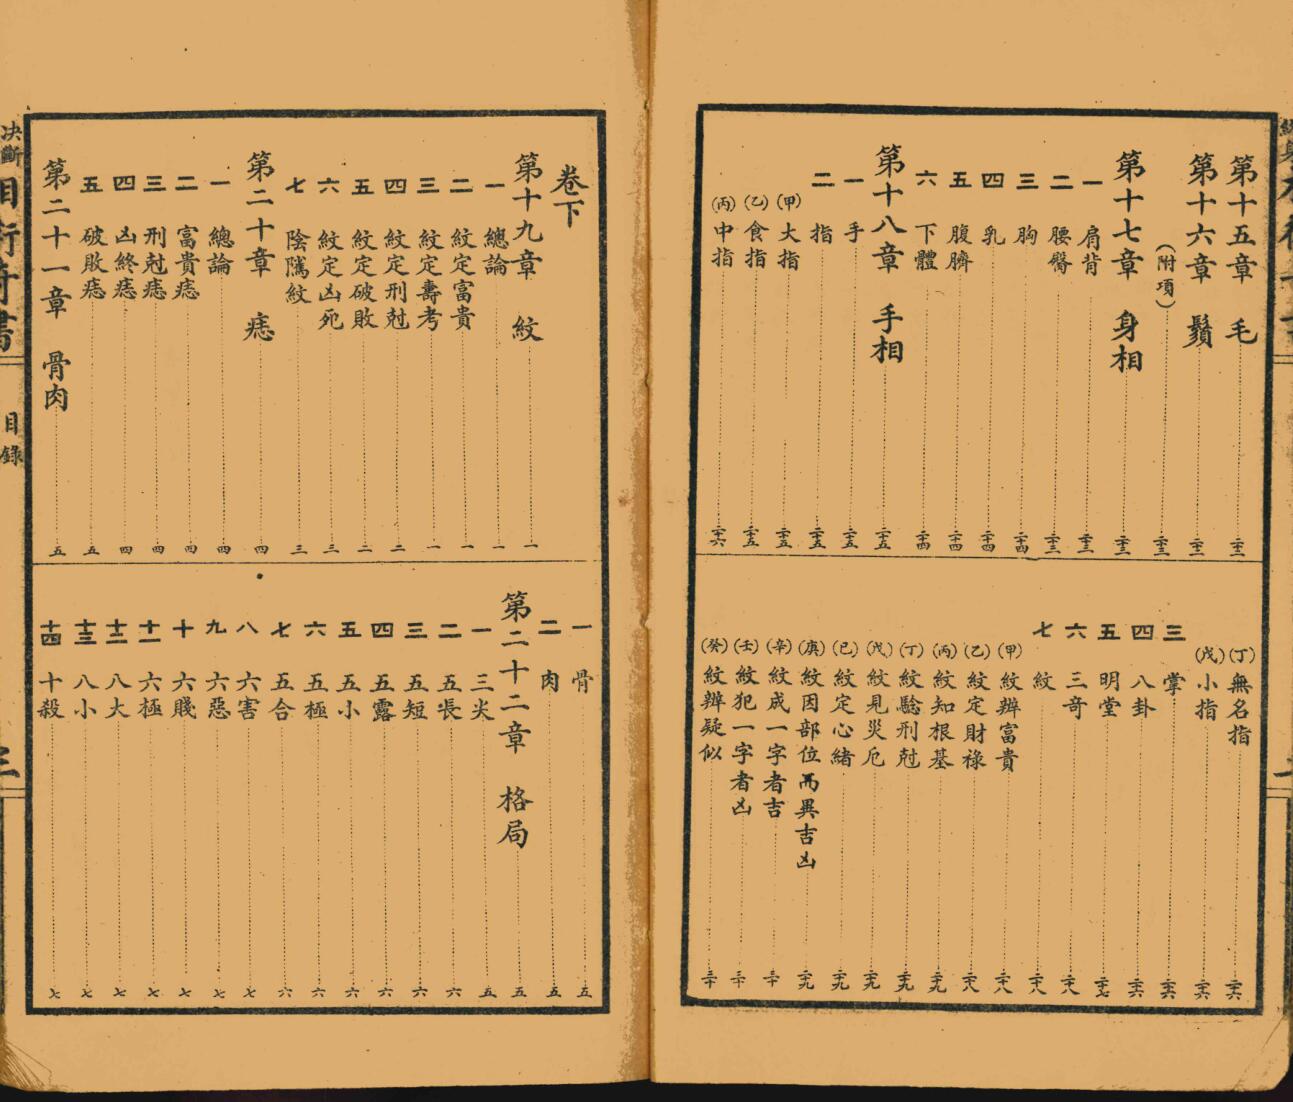 第十五章 毛 二十二
第十六章 鬚 二十二
（附項） 二十三
第十七章 身相 二十三
一 肩背 二十三
二 腰臀 二十三
三 胸 二十四
四 乳 二十四
五 腹臍 二十四
六 下體 二十四
第十八章 手相 二十五
一 手 二十五
二 指 二十五
（甲）大指 二十五
（乙）食指 二十五
（丙）中指 二十六
（丁）無名指 二十六
（戊）小指 二十六
三 掌 二十六
四 八卦 二十六
五 明堂 二十七
六 三奇 二十八
七 紋 二十八
（甲）紋辨富貴 二十八
（乙）紋定財祿 二十八
（丙）紋知根基 二十九
（丁）紋驗刑尅 二十九
（戊）紋見災厄 二十九
（己）紋定心緒 二十九
（庚）紋因部位而異吉凶 二十九
（辛）紋成一字者吉 三十
（壬）紋犯一字者凶 三十
（癸）紋辨疑似 三十
卷下
第十九章 紋 一
一 總論 一
二 紋定富貴 一
三 紋定壽考 一
四 紋定刑尅 二
五 紋定破敗 二
六 紋定凶死 三
七 陰騭紋 三
第二十章 痣 四
一 總論 四
二 富貴痣 四
三 刑尅痣 四
四 凶終痣 四
五 破敗痣 五
第二十一章 骨肉 五
一 骨 五
二 肉 五
第二十二章 格局 五
一 三尖 五
二 五長 六
三 五短 六
四 五露 六
五 五小 六
六 五極 六
七 五合 六
八 六害 七
九 六惡 七
十 六賤 七
十一 六極 七
十二 八大 七
十三 八小 七
十四 十殺 七
决斷 相術奇書 目錄 三